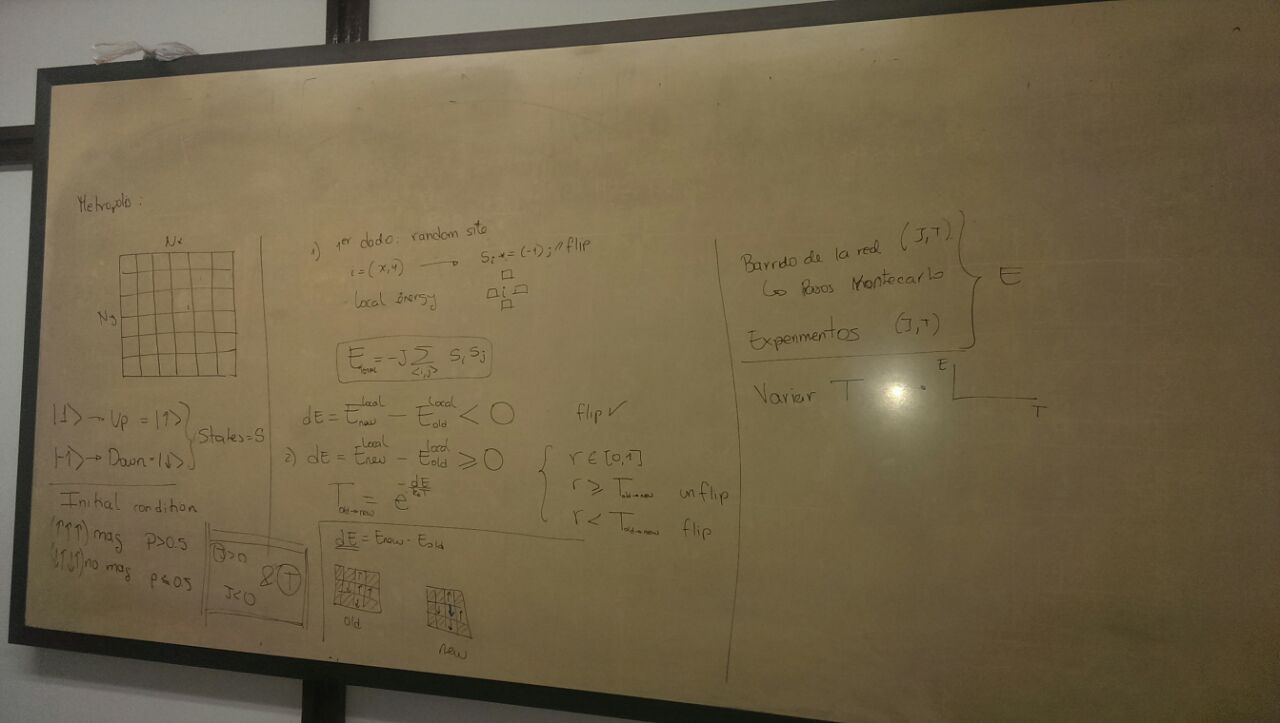 Metropolis:
Nx
Ny
|1> → Up = |↑>
|-1> → Down = |↓>
} States = S
Initial condition
(↑↑↑) mag p>0.5
(↓↑↓↑) no mag p≤0.5
J>0
J<0
& T
1) 1er dado: random site
i=(x,y) → Si *= (-1); // flip
Local Energy
i
E_local = -J ∑_<i,j> Si Sj
dE = E_new^local - E_old^local < 0 flip ✓
2) dE = E_new^local - E_old^local ≥ 0
T_old→new = e^(-dE/k_BT)
r ∈ [0,1]
r ≥ T_old→new unflip
r < T_old→new flip
dE = Enew - Eold
old
new
Barrido de la red (J,T)
↳ Pasos Montecarlo
Experimentos (J,T)
} E
Variar T
E
T